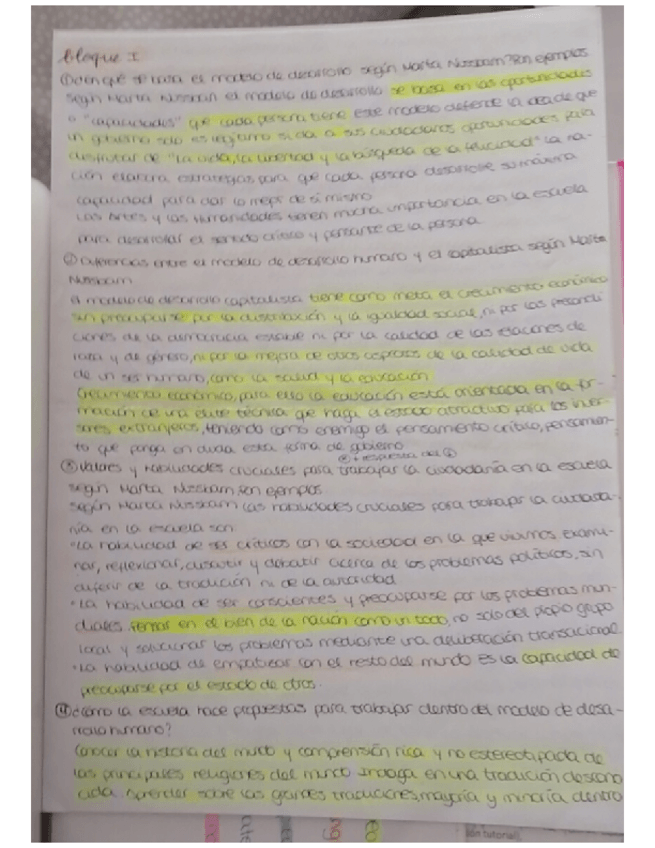 Bloque I
① ¿en qué se basa el modelo de desarrollo según Marta Nussbam? Pon ejemplos
según Marta Nussbam el modelo de desarrollo se basa en las oportunidades
o "capacidades" que cada persona tiene este modelo defiende la idea de que
un gobierno solo es legítimo si da a sus ciudadanos oportunidades para
disfrutar de "La vida, la libertad y la búsqueda de la felicidad" La na-
ción elabora estrategias para que cada persona desarrolle su máxima
capacidad para dar lo mejor de si mismo
Las Artes y las Humanidades tienen mucha importancia en la escuela
para desarrollar el sentido crítico y pensante de la persona
② diferencias entre el modelo de desarrollo humano y el capitalista según Marta
Nussbam
el modelo de desarrollo capitalista tiene como meta el crecimiento económico
sin preocuparse por la distribución y la igualdad social, ni por las precondi
ciones de la democracia estable ni por la calidad de las relaciones de
raza y de género, ni por la mejora de otros aspectos de la calidad de vida
de un ser humano, como la salud y la educación
Crecimiento económico, para ello la educación está orientada en la for-
mación de una élite técnica que haga el estado atractivo para los inver-
sores extranjeros, teniendo como enemigo el pensamiento crítico, pensamien-
to que ponga en duda esta forma de gobierno
+ respuesta del ①
③ Valores y habilidades cruciales para trabajar la ciudadanía en la escuela
según Marta Nussbam, pon ejemplos
según Marta Nussbam las habilidades cruciales para trabajar la ciudada-
nía en la escuela son:
• La habilidad de ser críticos con la sociedad en la que vivimos, exami-
nar, reflexionar, discutir y debatir acerca de los problemas políticos, sin
diferir de la tradición ni de la autoridad
• La habilidad de ser conscientes y preocuparse por los problemas mun-
diales, pensar en el bien de la nación como un todo, no solo del propio grupo
local y solucionar los problemas mediante una deliberación transaccional.
• La habilidad de empatizar con el resto del mundo es la capacidad de
preocuparse por el estado de otros.
④ ¿cómo la escuela hace propuestas para trabajar dentro del modelo de desa-
rrollo humano?
Conocer la historia del mundo y comprensión rica y no estereotipada de
las principales religiones del mundo Indaga en una tradición descono
cida aprender sobre las grandes tradiciones, mayoría y minoría dentro